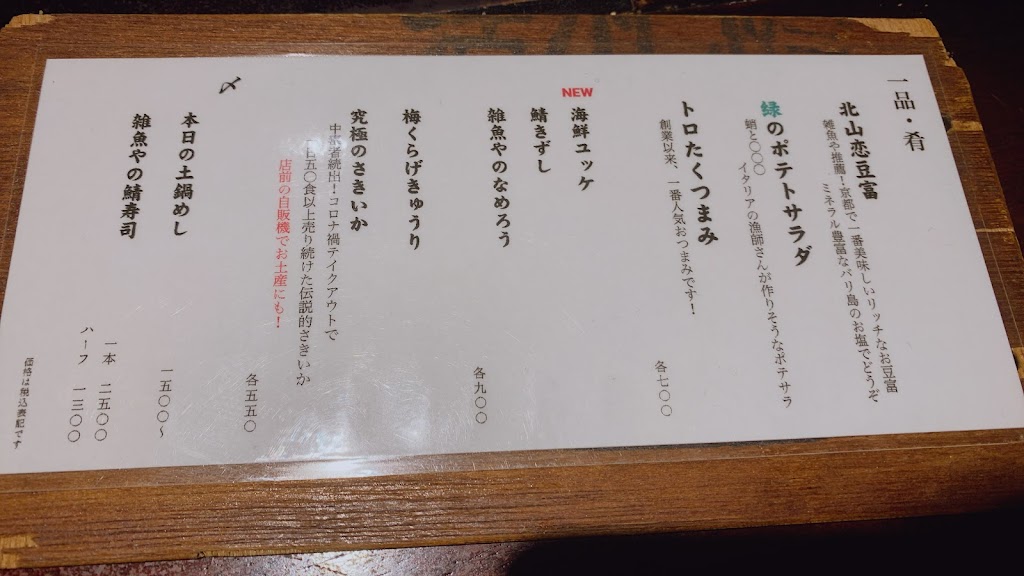 一品・肴
北山恋豆富
雑魚や推薦!京都で一番美味しいリッチなお豆富
ミネラル豊富なバリ島のお塩でどうぞ
緑のポテトサラダ
蛸と〇〇〇 イタリアの漁師さんが作りそうなポテサラ
トロたくつまみ
創業以来、一番人気おつまみです!
各七〇〇
NEW
海鮮ユッケ
鯖きずし
雑魚やのなめろう
各九〇〇
梅くらげきゅうり
究極のさきいか
中毒者続出!コロナ禍テイクアウトで
七五〇食以上売り続けた伝説的さきいか
店前の自販機でお土産にも!
各五五〇
〆
本日の土鍋めし
一五〇〇〜
雑魚やの鯖寿司
一本 二五〇〇
ハーフ 一三〇〇
価格は税込表記です